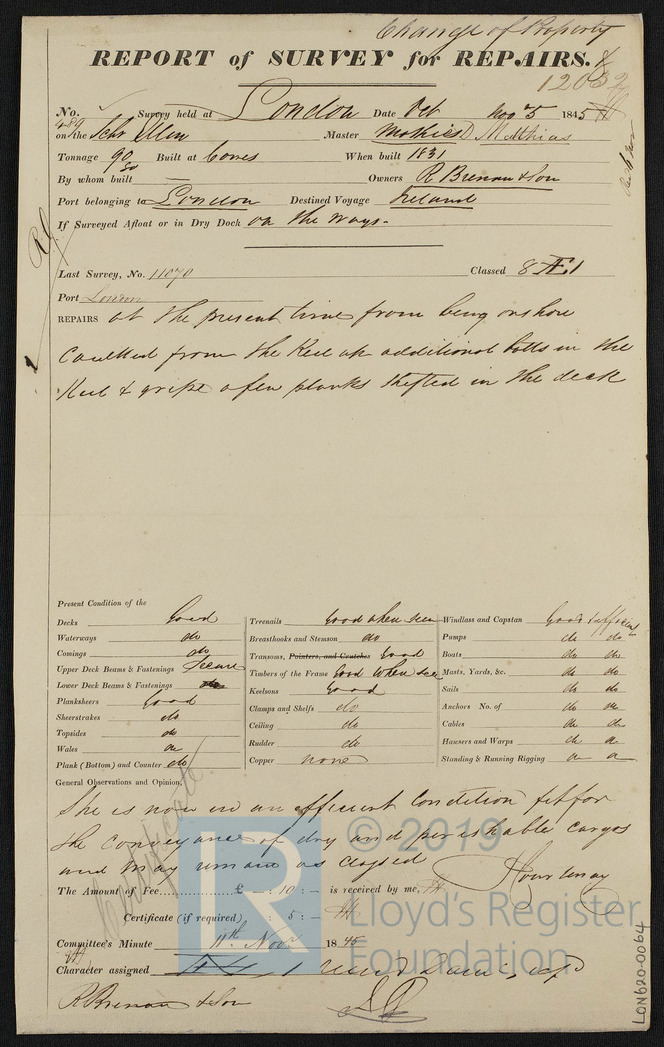 Change of Property
REPORT of SURVEY for REPAIRS.
12032
No. 489 Survey held at London Date Oct Nov 5 1845
on the Schr Ellen Master Mathias Matthias
Tonnage 90 Built at Cowes When built 1831
By whom built — Owners R Brenan & Son
Port belonging to London Destined Voyage Ireland
If Surveyed Afloat or in Dry Dock on the ways.
Last Survey, No. 11070 Classed 8 Æ 1
Port London
REPAIRS at the present time from being onshore
Caulked from the Keel up additional bolts in the
Keel & gripe a few planks shifted in the deck
Present Condition of the
Decks Good
Waterways do
Comings do
Upper Deck Beams & Fastenings Secure
Lower Deck Beams & Fastenings do
Planksheers Good
Sheerstrakes do
Topsides do
Wales do
Plank (Bottom) and Counter do
Treenails Good when seen
Breasthooks and Stemson do
Transoms, Pointers, and Crutches Good
Timbers of the Frame Good when seen
Keelsons Good
Clamps and Shelfs do
Ceiling do
Rudder do
Copper none
Windlass and Capstan Good & Sufficient
Pumps do do
Boats do do
Masts, Yards, &c. do do
Sails do do
Anchors No. of do do
Cables do do
Hausers and Warps do do
Standing & Running Rigging do do
General Observations and Opinion,
She is now in an efficient Condition fit for
the conveyance of dry and perishable cargos
and may remain as classed
Certificate
The Amount of Fee £ — : 10 : — is received by me,
Certificate (if required) : 5 : —
Committee's Minute 11th Novr 1845
Character assigned
R Brenan & Son
© 2019
LR
Lloyd's Register
Foundation
LON620-0064